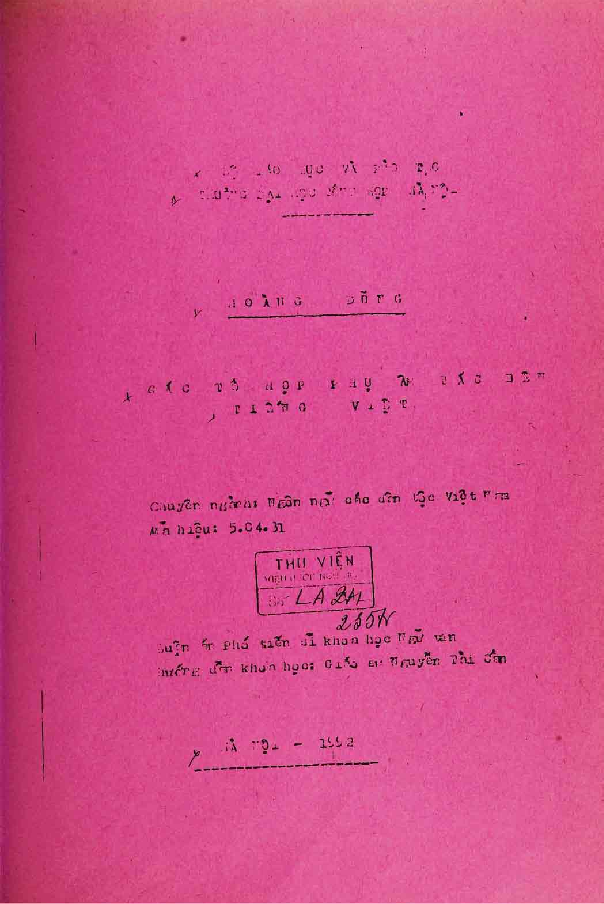 BỘ GIÁO DỤC VÀ ĐÀO TẠO
TRƯỜNG ĐẠI HỌC TỔNG HỢP HÀ NỘI
HOÀNG DŨNG
CÁC TỔ HỢP PHỤ ÂM TẮC BÊN
TIẾNG VIỆT
Chuyên ngành: Ngôn ngữ các dân tộc Việt Nam
Mã hiệu: 5.04.31
THƯ VIỆN
LA
Luận án Phó tiến sĩ khoa học Ngữ văn
Hướng dẫn khoa học: Giáo sư Nguyễn Tài Cẩn
HÀ NỘI - 1992